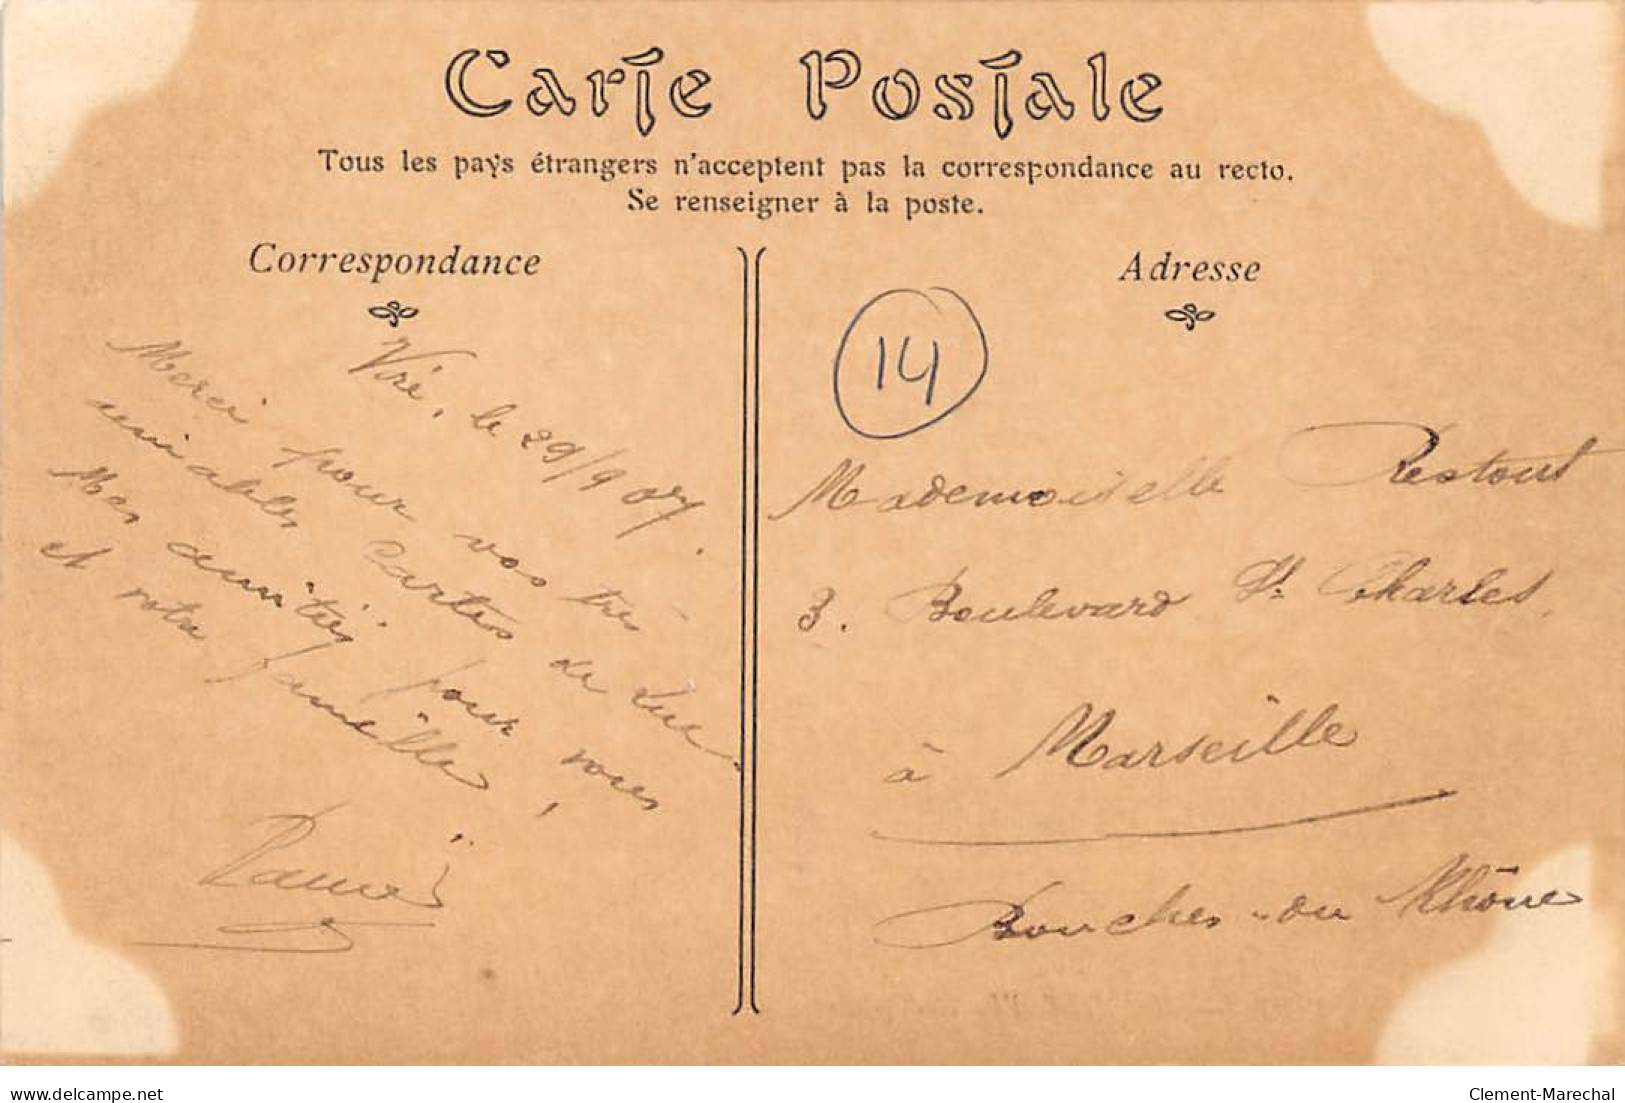 Carte Postale
Tous les pays étrangers n'acceptent pas la correspondance au recto.
Se renseigner à la poste.
Correspondance
Viré, le 29/9 07.
Merci pour vos très
aimables Cartes de
Mes amitiés pour vous
et votre famille,
Adresse
14
Mademoiselle Restout
3. Boulevard St Charles,
à Marseille
Bouches-du Rhône
www.delcampe.net
Clement-Marechal